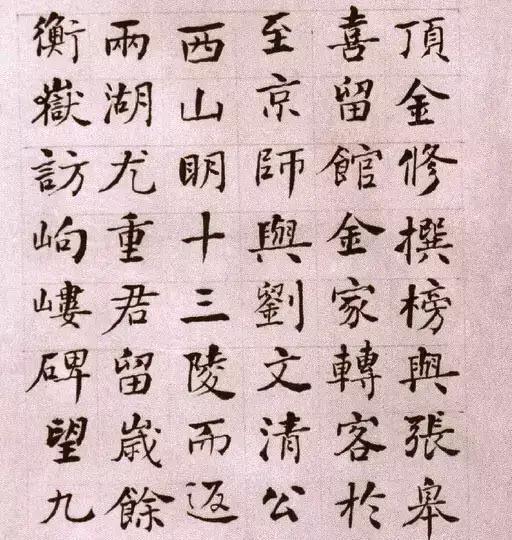 頂金修撰榜與張皋
喜留館金家轉客於
至京師與劉文清公
西山明十三陵而返
兩湖尤重君留歲餘
衡嶽訪岣嶁碑望九